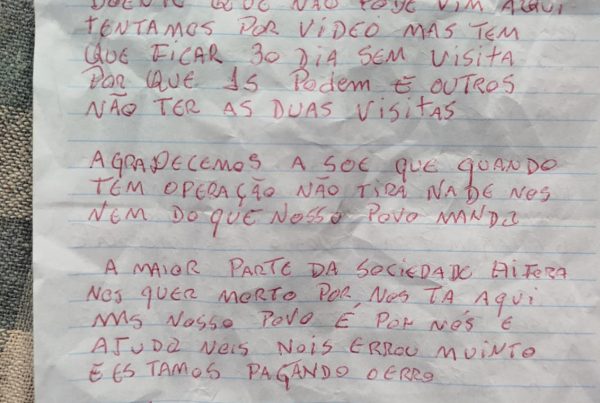 DOENTE QUE NÃO PODE VIM AQUI
TENTAMOS POR VIDEO MAS TEM
QUE FICAR 30 DIA SEM VISITA
POR QUE JS PODEM E OUTROS
NÃO TER AS DUAS VISITAS
AGRADECEMOS A SOE QUE QUANDO
TEM OPERAÇÃO NÃO TIRA NADE NOS
NEM DO QUE NOSSO POVO MANDA
A MAIOR PARTE DA SOCIEDADE
NOS QUER MORTO POR NOS TA AQUI
MAS NOSSO POVO É POR NÓS E
AJUDA NOIS NOIS ERROU MUINTO
E ESTAMOS PAGANDO O ERRO